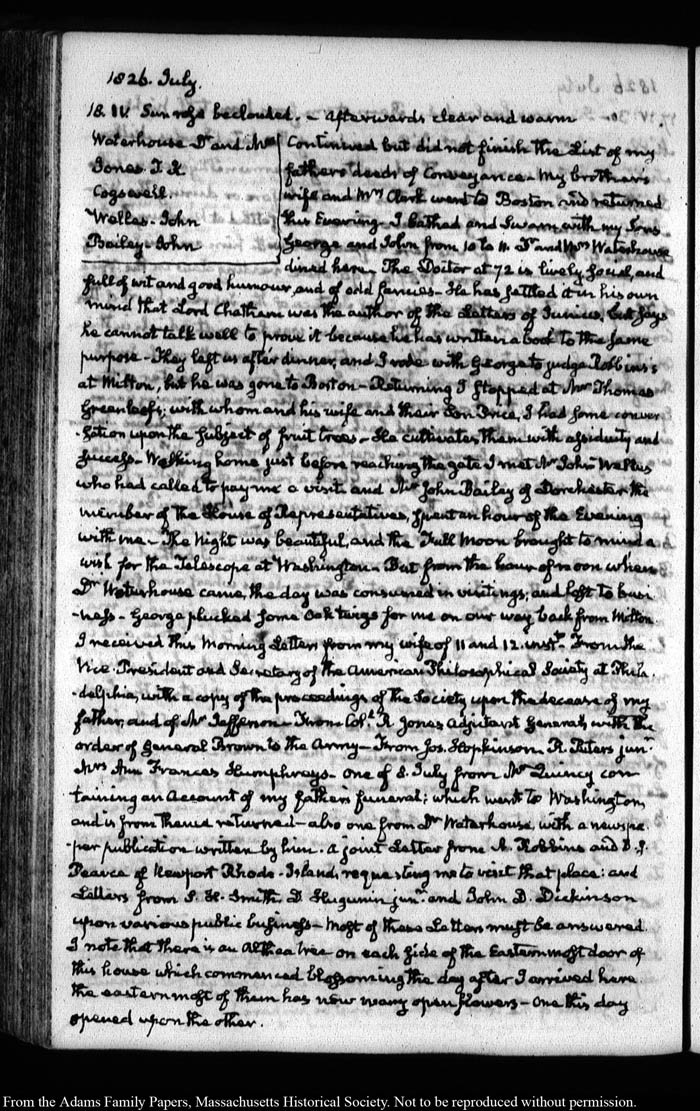 1826. July.
18. IV. Sun rose beclouded. – Afterwards clear and warm
Waterhouse Dr. and Mrs
Jones. T. K.
Cogswell.
Welles – John
Bailey – John
Continued but did not finish the List of my
fathers' deeds of Conveyance – My brother's
wife and Mrs Clark went to Boston and returned
this Evening – I bathed and swam with my Sons
George and John from 10 to 11. Dr and Mrs Waterhouse
dined here – The Doctor at 72 is lively, social, and
full of wit and good humour, and of odd fancies – He has settled it in his own
mind that Lord Chatham was the author of the Letters of Junius, but says
he cannot talk well to prove it because he has written a book to the same
purpose – They left us after dinner, and I rode with George to judge Robbins's
at Milton, but he was gone to Boston – Returning I stopped at Mr Thomas
Greenleaf's; with whom and his wife and their Son Price, I had some conver-
-sation upon the subject of fruit trees – He cultivates them with assiduity and
success – Walking home just before reaching the gate I met Mr John Welles
who had called to pay me a visit. and Mr John Bailey of Dorchester the
member of the House of Representatives, spent an hour of the Evening
with me – The Night was beautiful, and the Full Moon brought to mind a
wish for the Telescope at Washington – But from the hour of noon when
Dr Waterhouse came, the day was consumed in visitings; and lost to busi-
-ness – George plucked some Oak twigs for me on our way back from Milton.
I received this Morning Letters from my wife of 11 and 12. inst. – From the
Vice-President and Secretary of the American Philosophical Society at Phila-
-delphia, with a copy of the proceedings of the Society upon the decease of my
father, and of Mr Jefferson – From Col. R. Jones Adjutant General, with the
order of General Brown to the Army – From Jos. Hopkinson. R. Peters junr.
Mrs Ann Frances Humphreys – One of 8. July from Mr Quincy con-
-taining an Account of my father's funeral; which went to Washington,
and is from thence returned – also one from Dr Waterhouse, with a newspa-
-per publication written by him. A joint Letter from A. Robbins and D. J.
Pearce of Newport Rhode-Island, requesting me to visit that place: and
Letters from S. H. Smith. D. Hugunin junr. and John D. Dickinson
upon various public business – Most of these Letters must be answered.
I note that there is an Althea tree on each side of the Easternmost door of
this house which commenced blossoming the day after I arrived here
the easternmost of them has now many open flowers – One this day
opened upon the other.
From the Adams Family Papers, Massachusetts Historical Society. Not to be reproduced without permission.